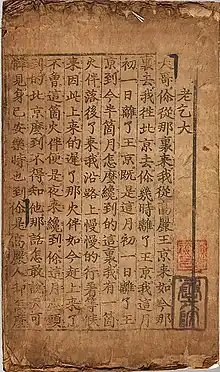 老乞大
大哥你從那裏來我從高麗王京來如今那
裏去我往北京去你幾時離了王京我這月
初一日離了王京既是這月初一日離了王
京到今半箇月怎麼纔到的這裏我有一箇
火伴落後了來我沿路上慢慢的行着等候
來因此上來的遲了那火伴如今趕上來了
不曾這箇火伴便是夜來纔到你這月盡頭
到的北京麼到不得知他那話怎敢說天可
憐見身已安樂時也到你是高麗人却怎麼